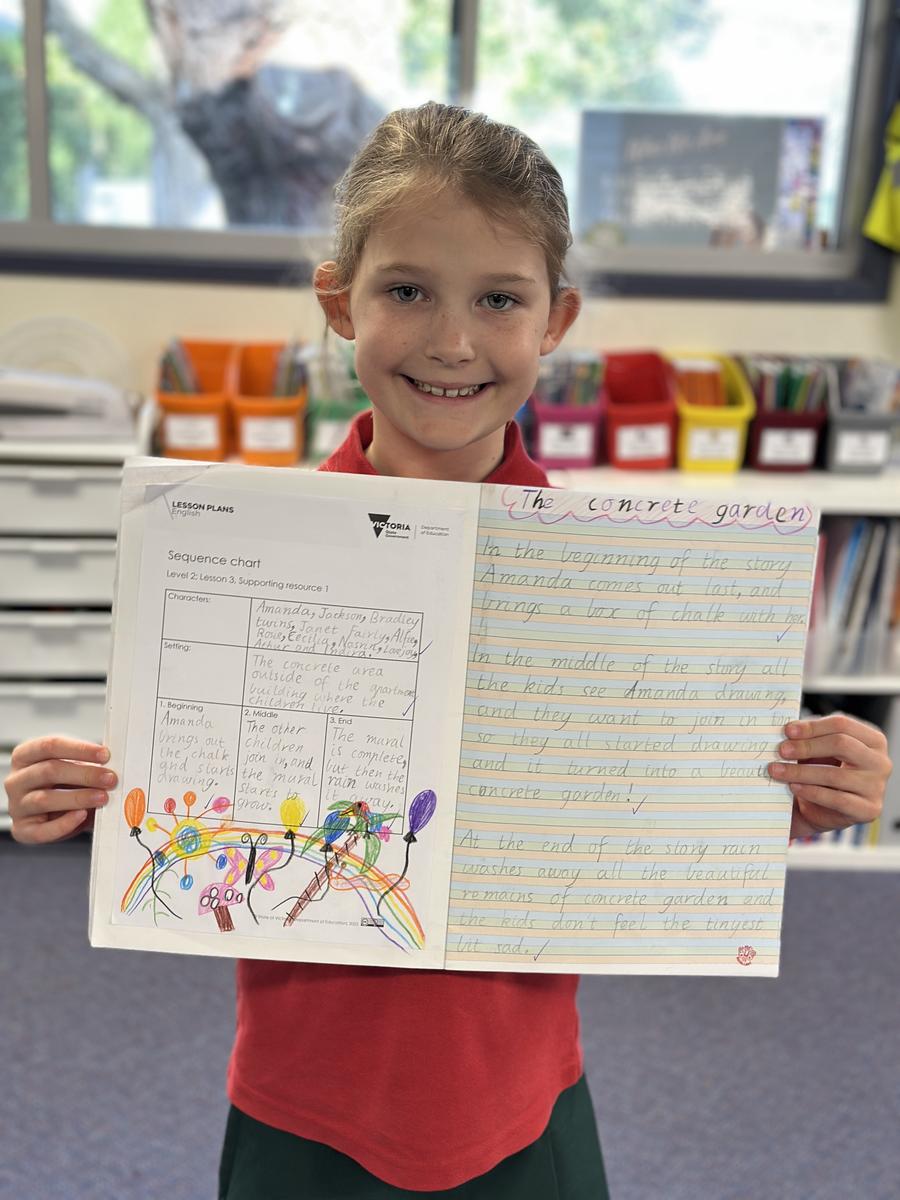 LESSON PLANS
English
VICTORIA
State
Government
Department
of Education
Sequence chart
Level 2: Lesson 3, Supporting resource 1
Characters:
Amanda, Jackson, Bradley
twins, Janet Fairly, Alfie,
Rose, Cecilia, Nasrin, Lovejoy,
Arthur and Indira.
Setting:
The concrete area
outside of the apartment
building where the
children live.
1. Beginning
Amanda
brings out
the chalk
and starts
drawing.
2. Middle
The other
children
join in, and
the mural
starts to
grow.
3. End
The mural
is complete,
but then the
rain washes
it away.
The concrete garden
In the beginning of the story
Amanda comes out last, and
brings a box of chalk with her.
In the middle of the story all
the kids see Amanda drawing,
and they want to join in too
so they all started drawing
and it turned into a beauti
concrete garden!
At the end of the story rain
washes away all the beautiful
remains of concrete garden and
the kids don't feel the tinyest
bit sad.